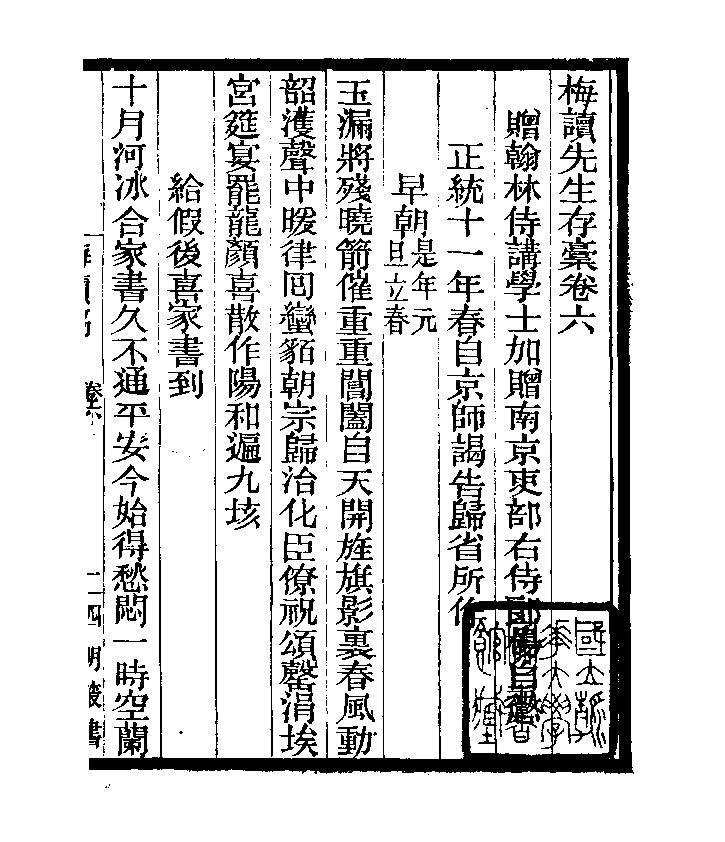 梅讀先生存稾卷六
贈翰林侍講學士加贈南京吏部右侍郎楊自懲著
正統十一年春自京師謁告歸省所作
早朝是年元旦立春
玉漏將殘曉箭催重重閶闔自天開旌旗影裏春風動
韶濩聲中暖律囘蠻貊朝宗歸治化臣僚祝頌罄涓埃
宮筵宴罷龍顏喜散作陽和遍九垓
給假後喜家書到
十月河冰合家書久不通平安今始得愁悶一時空蘭
卷六
四明叢書